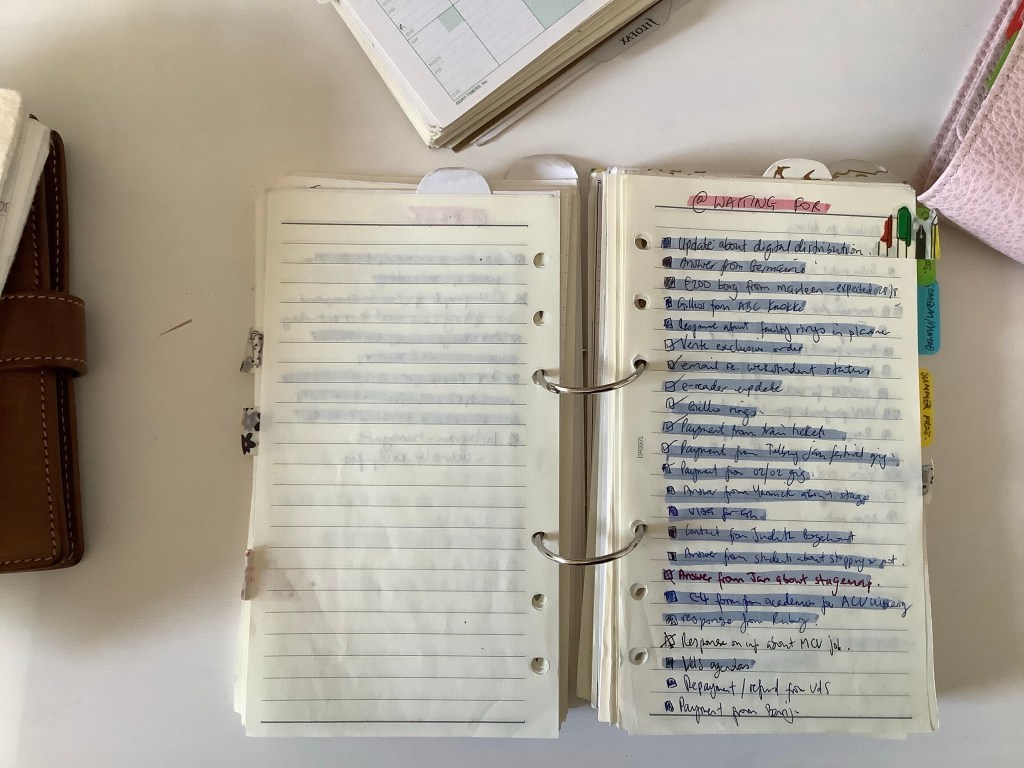 FILOFAX
@ WAITING FOR
Update about digital distribution.
Answer from Germaine
£200 borg from Marleen - expected 28/8
Gillio from ABC Knokke
Response about faulty rings in planner
Vente exclusive order
email re. werkstudent status
e-reader update
Gillio rings.
Payment from train tickets
Payment from Jazz festival gig.
Payment from 02/02 gig.
Answer from Yannick about stage
Visa for
Contact from Judith
Answer from students about stopping or not.
Answer from Jan about stagening.
form from academie for ACV
response from Ruby.
Response on about MCV job.
VdS agendas
Repayment / refund from VdS
Payment from
SUMMER PROJ.